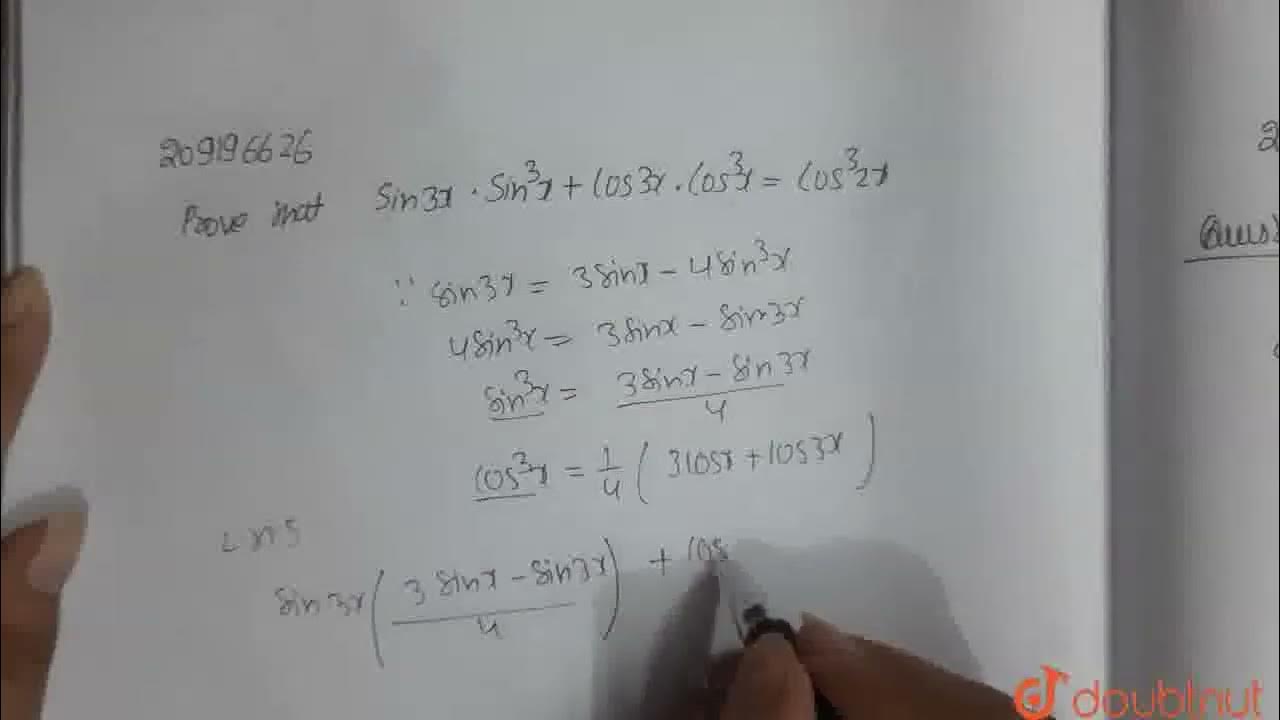 209196626
Prove that Sin3x . Sin³x + Cos3x . Cos³x = Cos³2x
∵ Sin3x = 3Sinx - 4Sin³x
4Sin³x = 3Sinx - Sin3x
Sin³x = 3Sinx - Sin3x / 4
Cos³x = 1/4 ( 3Cosx + Cos3x )
LHS
Sin3x ( 3Sinx - Sin3x / 4 ) + Cos
doubtnut